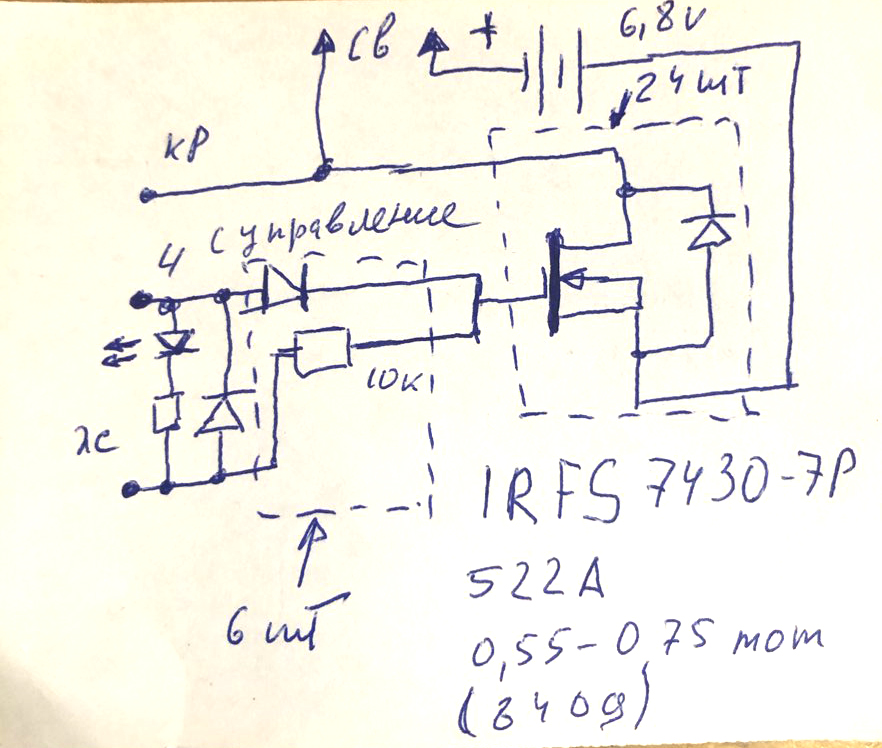 св + 6,8v
24 шт
кр
ч с управление
10к
лс
6 шт
IRFS 7430-7P
522А
0,55-0,75 mom